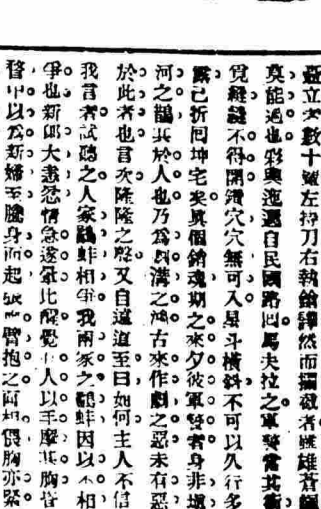 矗立者數十輩左持刀右執鎗譁然而攔截者雖雄蒼頭
莫能過也彩輿迤邐自民國路回馬夫拉之軍警當其衝
覓縫縫不得開鑽穴穴無可入星斗橫斜不可以久行多
露已折回坤宅矣眞個銷魂期之來夕彼軍警者身非塡
河之鵲其於人也乃爲與溝之鴻古來作劇之惡未有惡
於此者也言次隆隆之聲又自遠道至曰如何主人不信
我言者試聽之人家鷸蚌相爭我兩家之鷸蚌因以不相
爭也新郎大恚忿情急遂暈比醒覺人以手摩其胸皆
瞀中以爲新婦至騰身而起張臂抱之而相偎胸亦緊